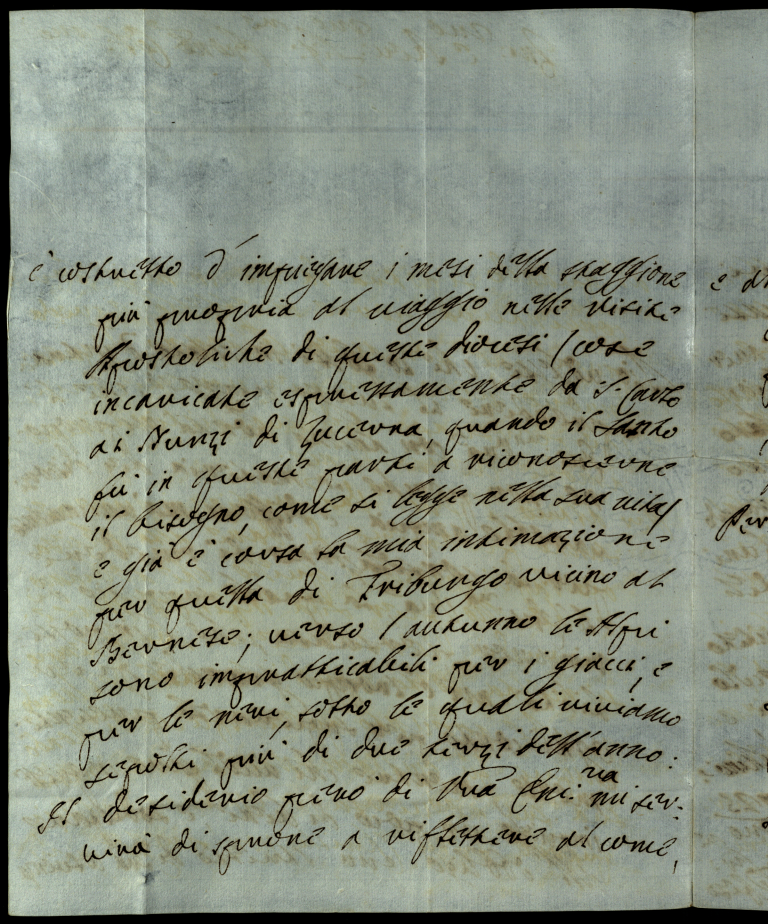 è costretto d'impiegare i mesi della staggione
più propria al viaggio nelle visite
Apostoliche di queste diocesi (cose
incaricate espressamente da S. Carlo
ai Nunzi di Lucerna, quando il Santo
fù in queste parti a riconoscerne
il bisogno, come si legge nella sua vita)
e già è corsa la mia intimazione
per quella di Friburgo vicino al
Bernese; verso l'autunno le Alpi
sono impratticabili per i giacci, e
per le nevi, sotto le quali viviamo
sepolti più di due terzi dell'anno:
Il desiderio però di Vra Em:za mi ser:
virà di sprone a riflettere al come,